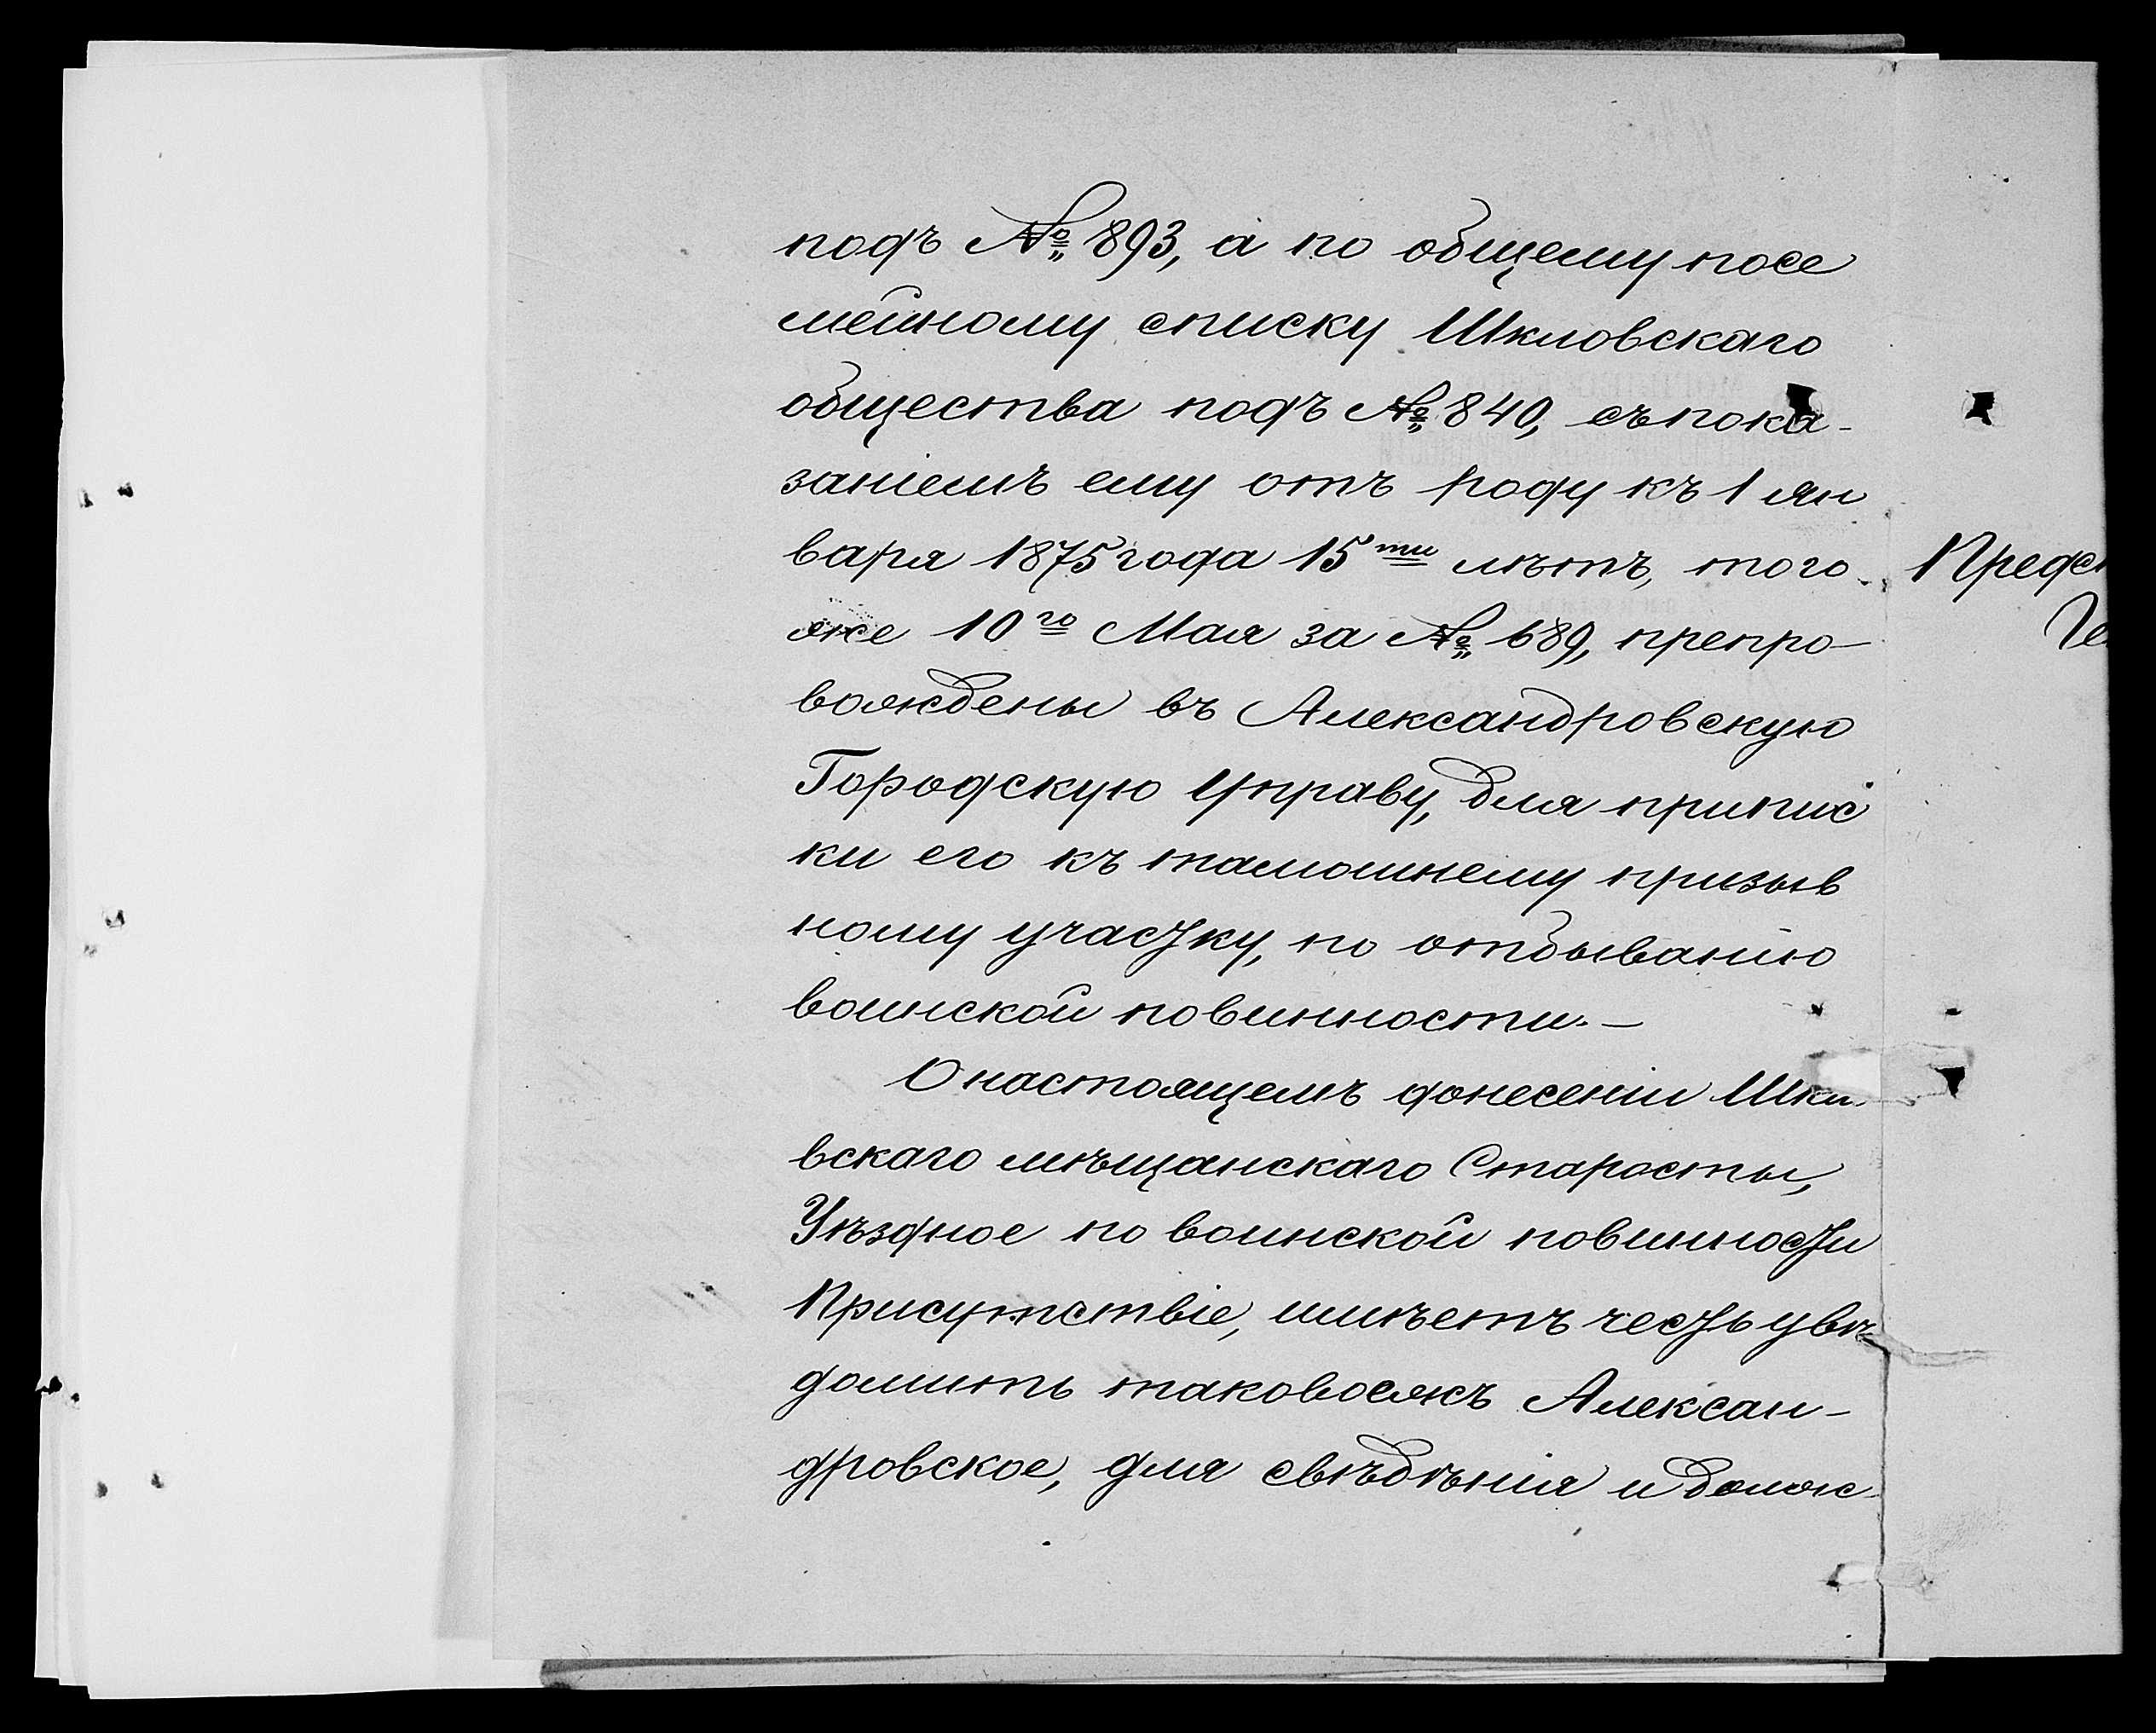 подъ № 893, а по общему посе
мейному списку Шкловскаго
общества подъ № 840, съ пока-
заніемъ ему отъ роду къ 1 ян
варя 1875 года 15ти лѣтъ, того
же 10го Мая за № 689, препро-
вождены въ Александровскую
Городскую Управу, для припис
ки его къ тамошнему призыв
ному участку, по отбыванію
воинской повинности.—
О настоящемъ донесеніи Шкл
вскаго мѣщанскаго Старосты,
Уѣздное по воинской повинности
Присутствіе, имѣетъ честь увѣ
домить таковоежъ Алексан-
дровское, для свѣдѣнія и долж-